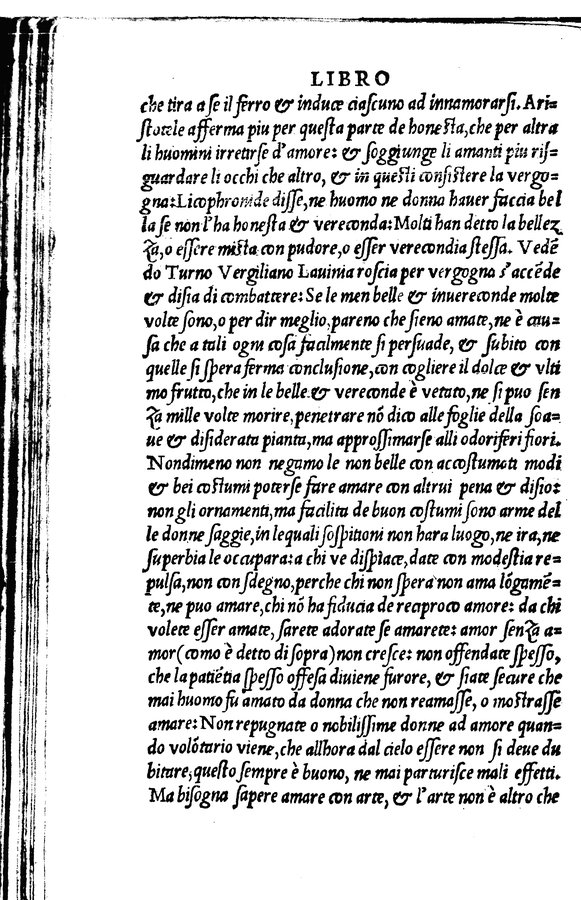 LIBRO
che tira a se il ferro & induce ciascuno ad innamorarsi. Ari=
stotele afferma piu per questa parte de honesta, che per altra
li huomini irretirse d'amore: & soggiunge li amanti piu ris=
guardare li occhi che altro, & in questi consistere la vergo=
gna: Licophronide disse, ne huomo ne donna hauer faccia bel
la se non l'ha honesta & vereconda: Molti han detto la bellez
za, o essere mista con pudore, o esser verecondia stessa. Vedẽ
do Turno Vergiliano Lauinia roscia per vergogna s'accẽde
& disia di combattere: Se le men belle & inuereconde molte
volte sono, o per dir meglio, pareno che sieno amate, ne è cau=
sa che a tali ogni cosa facilmente si persuade, & subito con
quelle si spera ferma conclusione, con cogliere il dolce & vlti
mo frutto, che in le belle & vereconde è vetato, ne si puo sen
za mille volte morire, penetrare nõ dico alle foglie della soa=
ue & disiderata pianta, ma approssimarse alli odoriferi fiori.
Nondimeno non negamo le non belle con accostumati modi
& bei costumi poterse fare amare con altrui pena & disio:
non gli ornamenti, ma facilita de buon costumi sono arme del
le donne saggie, in lequali sospitioni non hara luogo, ne ira, ne
superbia le occupara: a chi ve dispiace, date con modestia re=
pulsa, non con sdegno, perche chi non spera non ama lõgamẽ=
te, ne puo amare, chi nõ ha fiducia de reciproco amore: da chi
volete esser amate, sarete adorate se amarete: amor senza a=
mor (como è detto di sopra) non cresce: non offendate spesso,
che la patiẽtia spesso offesa diuiene furore, & siate secure che
mai huomo fu amato da donna che non reamasse, o mostrasse
amare: Non repugnate o nobilissime donne ad amore quan=
do volõtario viene, che allhora dal cielo essere non si deue du
bitare, questo sempre è buono, ne mai parturisce mali effetti.
Ma bisogna sapere amare con arte, & l'arte non è altro che